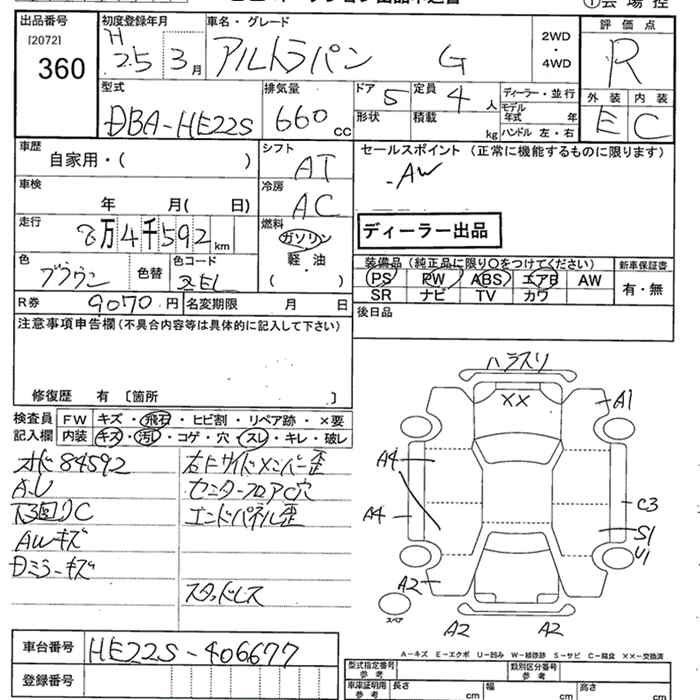 出品番号
[2072]
360
初度登録年月
H
25 3月
車名・グレード
アルトラパン G
2WD
・
4WD
評価点
R
外装 内装
E C
型式
DBA-HE22S
排気量
660 cc
ドア 5
定員 4 人
形状
積載 kg
ディーラー・並行
モデル
年式 年
ハンドル 左・右
車歴
自家用・( )
シフト
AT
セールスポイント (正常に機能するものに限ります)
AW
車検
年 月( 日)
冷房
AC
走行
8万4千592km
燃料
ガソリン
軽・油
( )
ディーラー出品
色
ブラウン
色替
色コード
装備品(純正品に限り○をつけてください)
PS PW ABS エアB AW
SR ナビ TV カワ
新車保証書
有・無
R券 9070円
名変期限 月 日
後日品
注意事項申告欄(不具合内容等は具体的に記入して下さい)
修復歴 有 〔箇所 〕
検査員
記入欄
FW キズ・飛石・ヒビ割・リペア跡・×要
内装 キズ・汚レ・コゲ・穴・スレ・キレ・破レ
オド84592
A.U
下回りC
AWキズ
Dミラーキズ
右Fサイドメンバー歪
センターフロアC穴
エンドパネル歪
スタッドレス
ハラスリ
XX
A1
A4
A4
C3
S1
U1
A2
スペア
A2 A2
A-キズ E-エクボ U-凹み W-補修跡 S-サビ C-腐食 XX-交換済
車台番号
HE22S-406677
登録番号
型式指定番号
参考
類別区分番号
参考
車庫証明用
参考
長さ cm
幅 cm
高さ cm